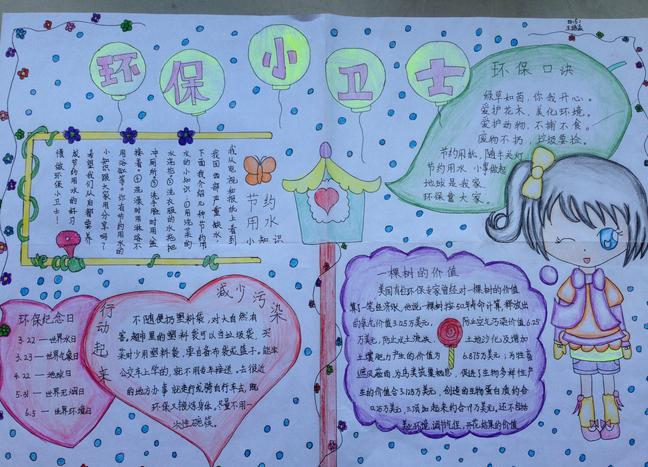 环保小卫士
环保口诀
绿草如茵，你我开心。
爱护花木，美化环境。
爱护动物，不捕不食。
废物不扔，垃圾要捡。
节约用电，随手关灯
节约用水，小掌做起
地球是我家
环保靠大家。
节约
用水
小知识
我从电视和报纸上看到
我国西部严重缺水，
下面我介绍几种节约用
水的小知识：①用洗菜的
水浇花②洗衣服的水拖地
冲厕所③洗手脸时用盆
接着。④洗漱时用淋浴不
用浴缸等。你有节约用水的
小知识跟大家用分享啊？
希望我们从自都要养
成节约用水的好习
惯做环保小卫士！
环保纪念日
3.22—世界水日
3.23—世界气象日
4.22—地球日
5.31—世界无烟日
6.5—世界环境日
行动起来
减少污染
不随便扔塑料袋，对大自然有
害，超市里的塑料袋可以当垃圾袋，买
菜时少用塑料袋，要自备布袋或篮子，能坐
公交车上学的，就不用自车接送，去很近
的地方办事就走路或骑自行车去，既
环保又锻炼身体。尽量不用一
次性碗筷。
一棵树的价值
美国有位环保专家曾经对一棵树的价值
算了一笔经济账，他说：一棵树按50年寿命计算，释放出
的氧气价值3.125万美元，防止空气污染价值6.25
万美元，防止水土流失、土地沙化及增加
土壤肥力产生的价值为6.875万美元；为牲畜
遮风避雨，为鸟类筑巢栖息，促进了生物多样性产
生的价值合3.125万美元，创造的生物蛋白质约合
0.25万美元，三项加起来约合17万美元，还不包括
美化环境，调节气候，开花结果的价值